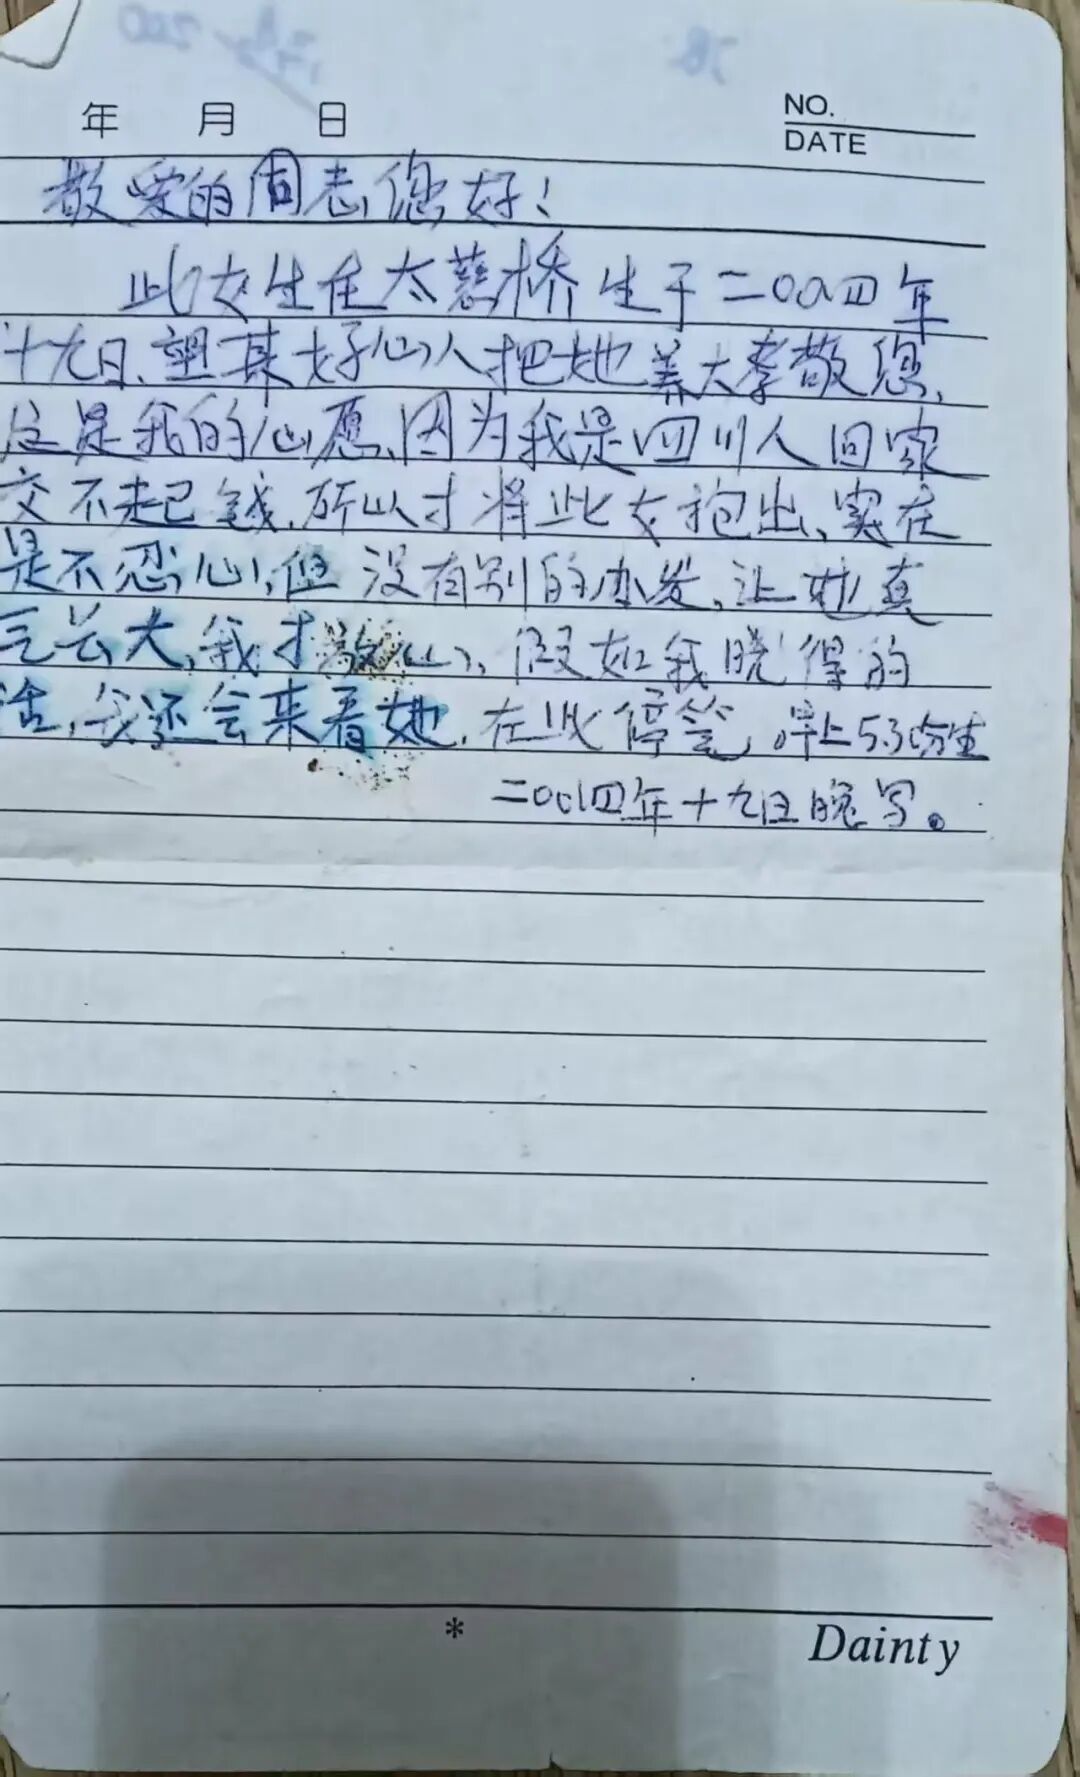 年 月 日 NO.
DATE
敬爱的同志您好!
此女生在太慈桥生于二00四年
十九日、望某好心人把她养大孝敬您,
这是我的心愿、因为我是四川人回家
交不起己钱、所以才将此女抱出、实在
是不忍心,但没有别的办发,让她真
气长大,我才放心、假如我晓得的
话,我还会来看她,在此停笔, 早上5.30分生
二00四年十九日晚写。
* Dainty